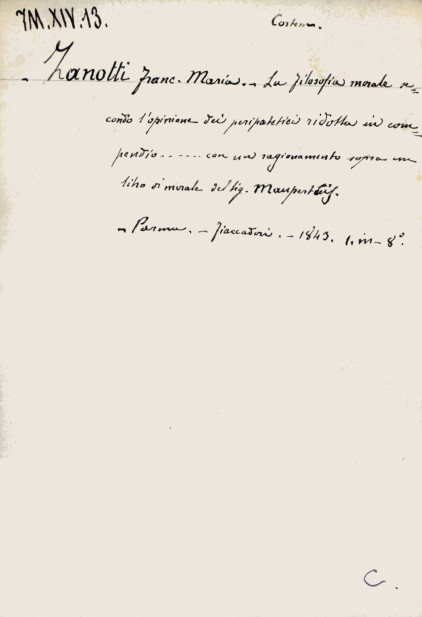 7M.XIV.13.
Cortem.
- Zanotti Franc. Maria. - La filosofia morale se-
condo l'opinione dei peripatetici ridotta in com-
pendio ...... con un ragionamento sopra un
libro di morale del Sig. Maupertuis.
- Parma. - Fiaccadori. - 1843. 1. in - 8°.
C.